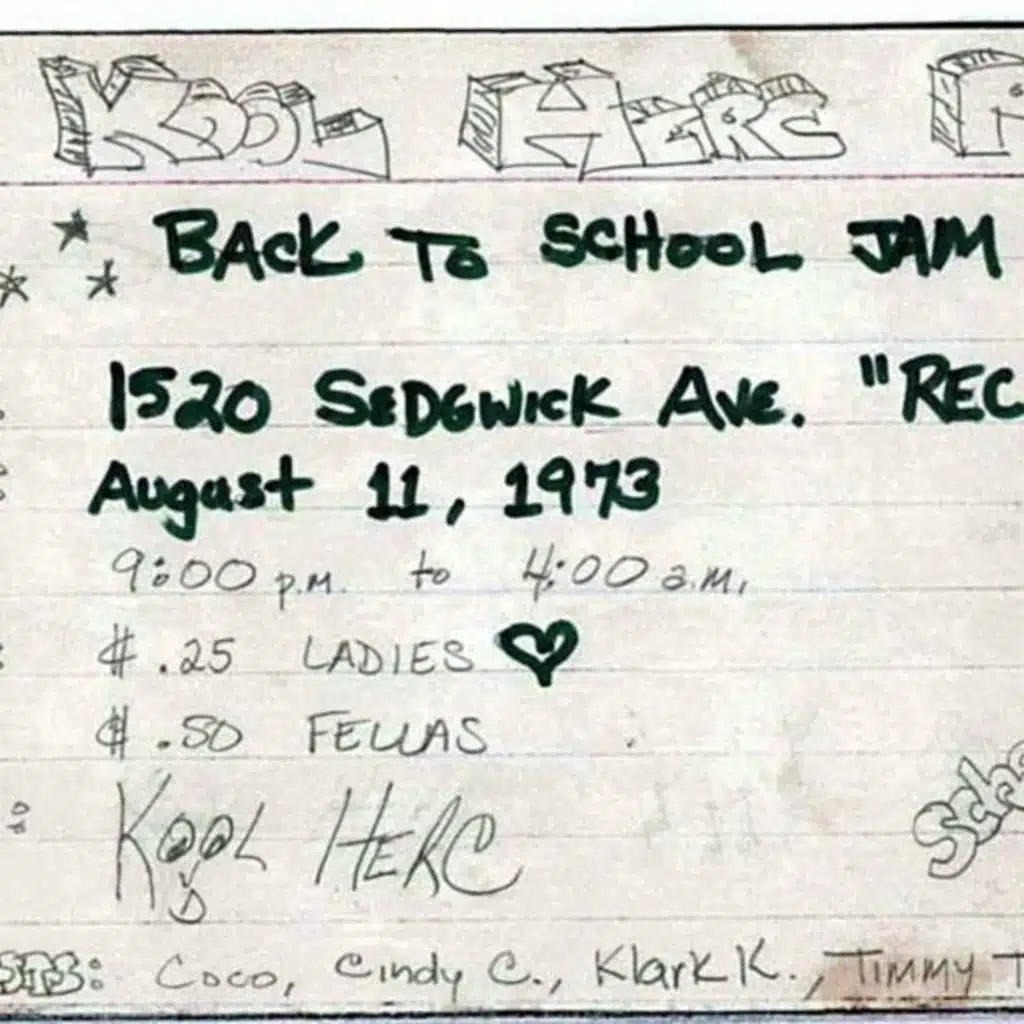 KOOL HERC P
BACK TO SCHOOL JAM
1520 SEDGWICK AVE. "REC
August 11, 1973
9:00 p.m. to 4:00 a.m.
$ .25 LADIES
$ .50 FELLAS
KOOL HERC
Scho
STS: Coco, Cindy C., Klark K., Timmy T